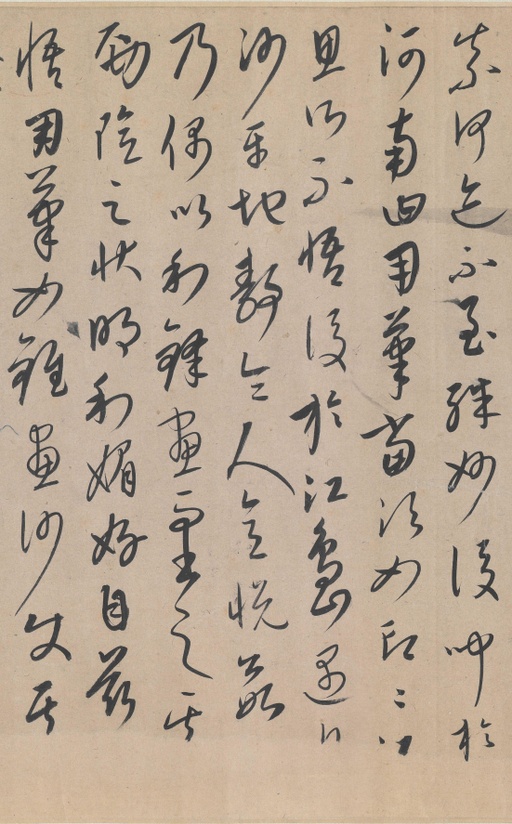 柰何迹不至殊妙後於
河南曰用筆當須如印〻
思所不悟後於江島遇
沙平地靜令人意悅欲
乃偶以利鋒畫而書之其
勁險之狀明利媚好自茲
悟用筆如錐畫沙使其